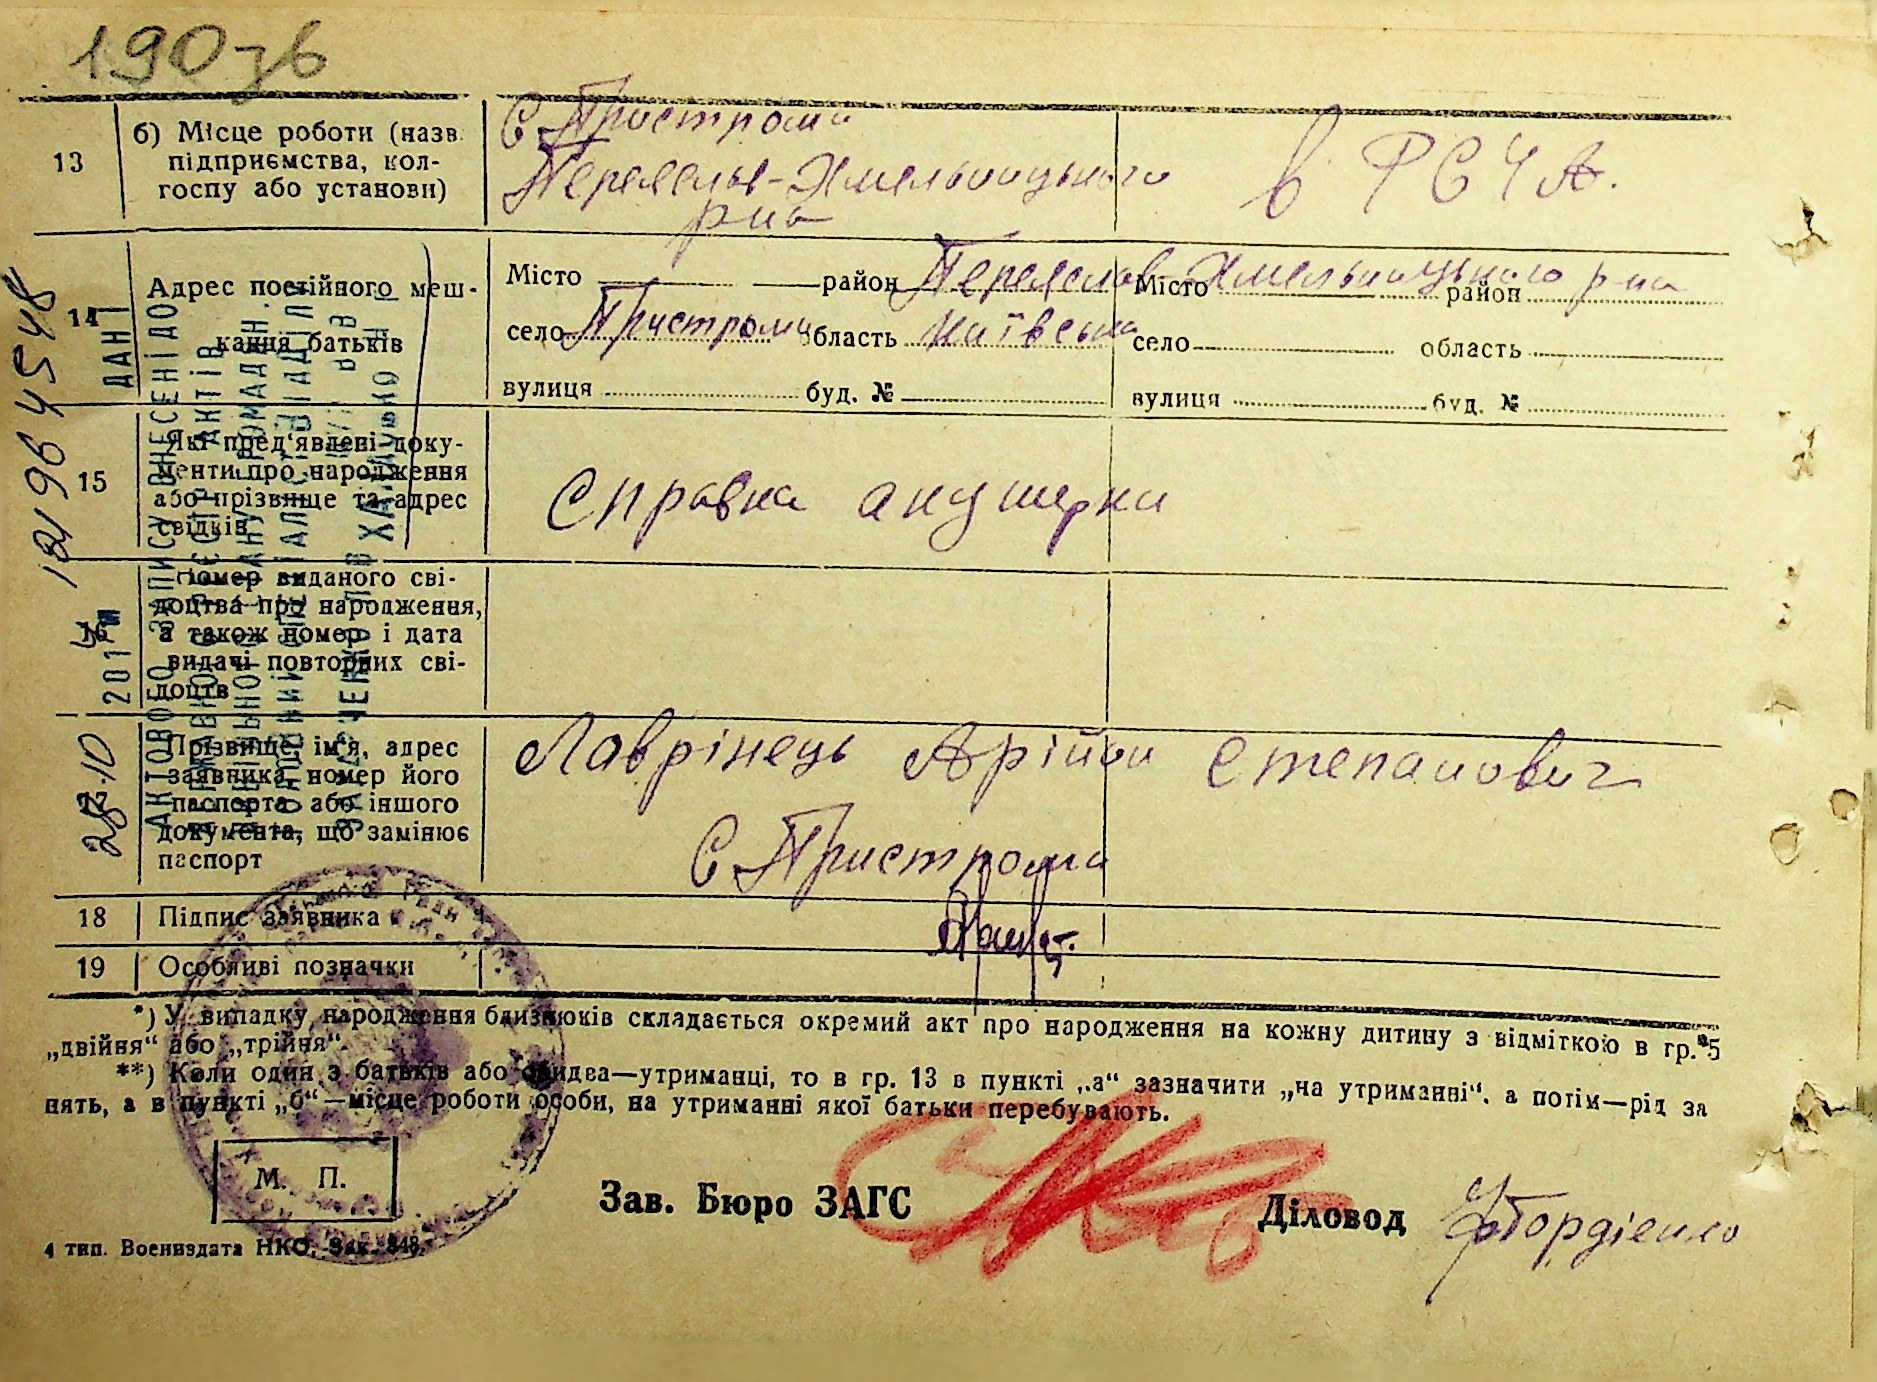 190 зв
13 б) Місце роботи (назв. підприємства, колгоспу або установи)
С Пристроми
Переяслав-Хмельницького
р-на
в РСЧА.
14 Адрес постійного мешкання батьків
Місто район Переяслав-Хмельницького р-на
село Пристроми область Київська
вулиця буд. №
Місто район
село область
вулиця буд. №
15 Які пред'явлені документи про народження або прізвище та адрес свідків
Справка акушерки
Номер виданого свідоцтва про народження, а також номер і дата видачі повторних свідоцтв
Прізвище, ім'я, адрес заявника, номер його паспорта або іншого документа, що замінює паспорт
Лаврінець Арійон Степанович
С Пристроми
18 Підпис заявника
19 Особливі позначки
*) У випадку народження близнюків складається окремий акт про народження на кожну дитину з відміткою в гр. 5
„двійня“ або „трійня“
**) Коли один з батьків або обидва—утриманці, то в гр. 13 в пункті „а“ зазначити „на утриманні“, а потім—рід за
нять, а в пункті „б“—місце роботи особи, на утриманні якої батьки перебувають.
М. П.
Зав. Бюро ЗАГС
Діловод Гордієнко
4 тип. Воениздата НКО. Зак. 848.
ДАНІ
АКТОВОГО ЗАПИСУ ВНЕСЕНІ ДО
28.10 201